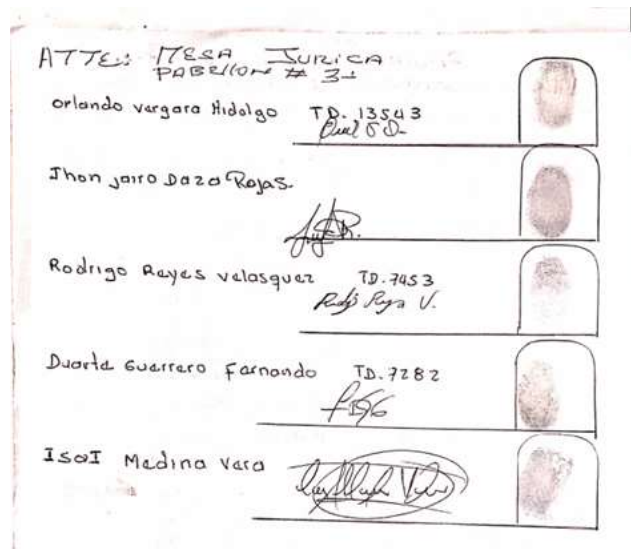 ATTE: MESA JURICA
PABELLON # 3-
orlando vergara Hidalgo TD. 13543
Jhon jairo Daza Rojas.
Rodrigo Reyes velasquez TD.7453
Rodj Reyes V.
Duarte Guerrero Fernando TD.7282
FDG
IsaI Medina Vera